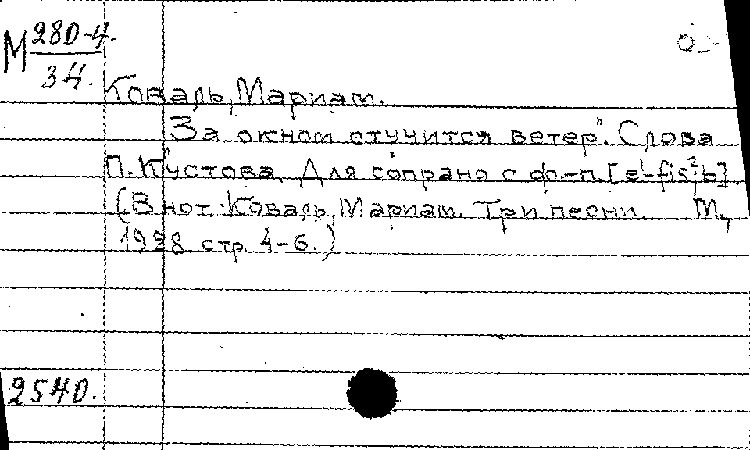 М 280-4.
34.
Коваль, Мариам.
"За окном стучится ветер". Слова
П. Кустова. Для сопрано с ф.-п. [e¹-fis², b]
(В нот. Коваль, Мариам. Три песни. М.,
1928 стр. 4-6.)
2540.